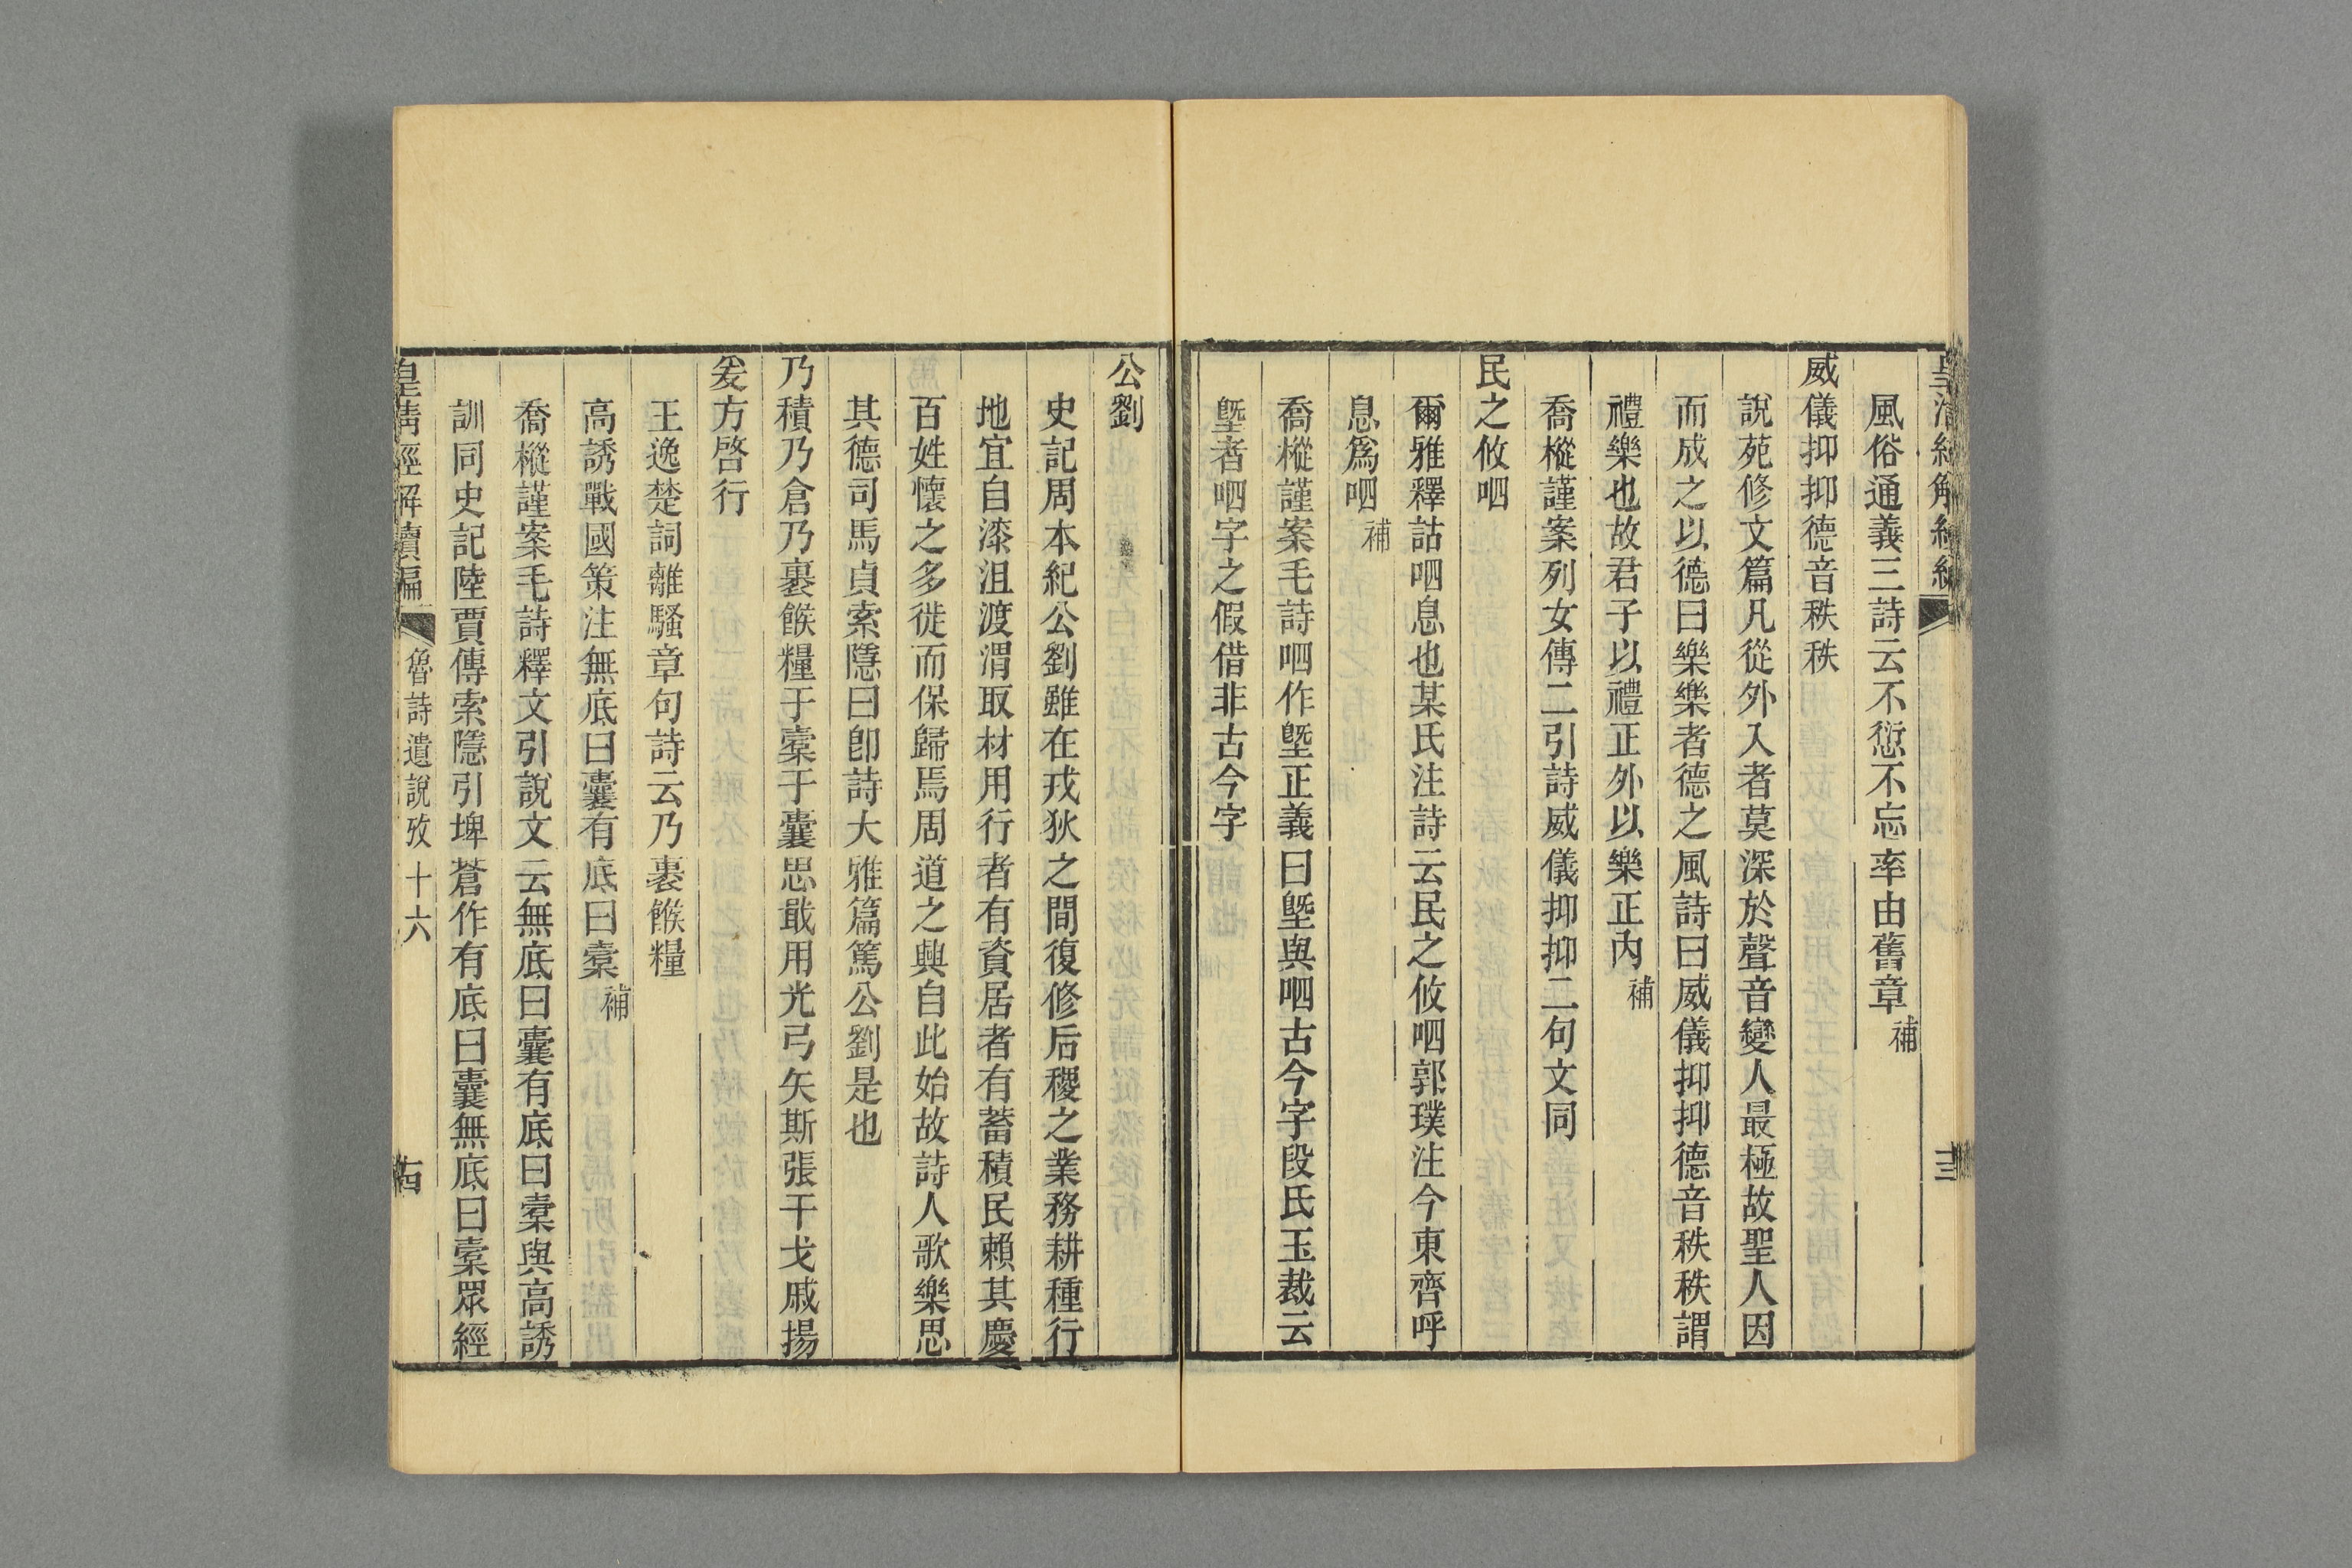 風俗通義三詩云不愆不忘率由舊章補
威儀抑抑德音秩秩
說苑修文篇凡從外入者莫深於聲音變人最極故聖人因
而成之以德曰樂樂者德之風詩曰威儀抑抑德音秩秩謂
禮樂也故君子以禮正外以樂正內補
喬樅謹案列女傳二引詩威儀抑抑二句文同
民之攸呬
爾雅釋詁呬息也某氏注詩云民之攸呬郭璞注今東齊呼
息爲呬補
喬樅謹案毛詩呬作墍正義曰墍與呬古今字段氏玉裁云
墍者呬字之假借非古今字
公劉
史記周本紀公劉雖在戎狄之間復修后稷之業務耕種行
地宜自漆沮渡渭取材用行者有資居者有蓄積民賴其慶
百姓懷之多徙而保歸焉周道之興自此始故詩人歌樂思
其德司馬貞索隱曰卽詩大雅篇篤公劉是也
乃積乃倉乃裹餱糧于橐于囊思戢用光弓矢斯張干戈戚揚
爰方啓行
王逸楚詞離騷章句詩云乃裹餱糧
高誘戰國策注無底曰囊有底曰橐補
喬樅謹案毛詩釋文引說文云無底曰囊有底曰橐與高誘
訓同史記陸賈傳索隱引埤蒼作有底曰囊無底曰橐眾經
皇清經解續編
魯詩遺說攷十六
十四